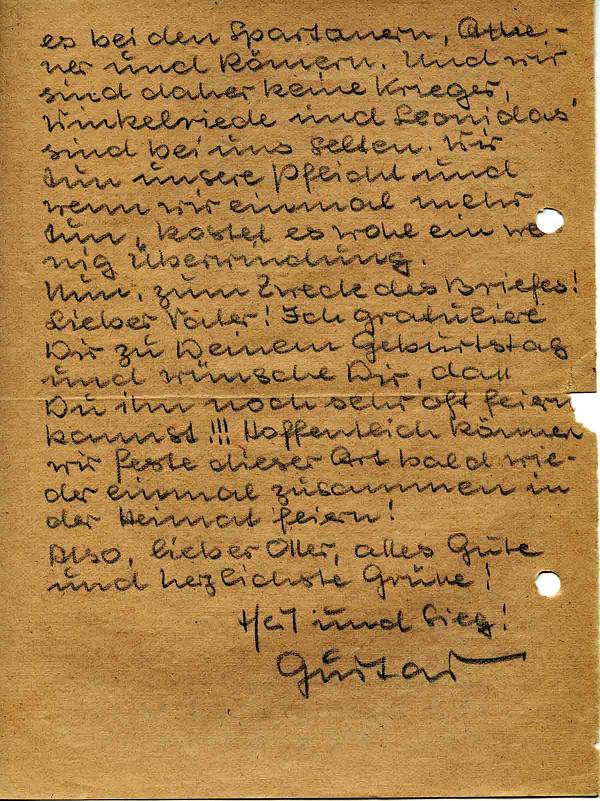 es bei den Spartanern, Athe-
ner und Römern. Und wir
sind daher keine Krieger,
Winkelriede und Leonidas'
sind bei uns selten. Wir
tun unsere Pflicht und
wenn wir einmal mehr
tun, kostet es wohl ein we
nig Überwindung.
Nun, zum Zweck des Briefes!
Lieber Vater! Ich gratuliere
Dir zu Deinem Geburtstag
und wünsche Dir, daß
Du ihn noch sehr oft feiern
kannst!!! Hoffentlich können
wir feste dieser Art bald wie-
der einmal zusammen in
der Heimat feiern!
Also, lieber Otter, alles Gute
und herzlichste Grüße!
Heil und Sieg!
Gustav